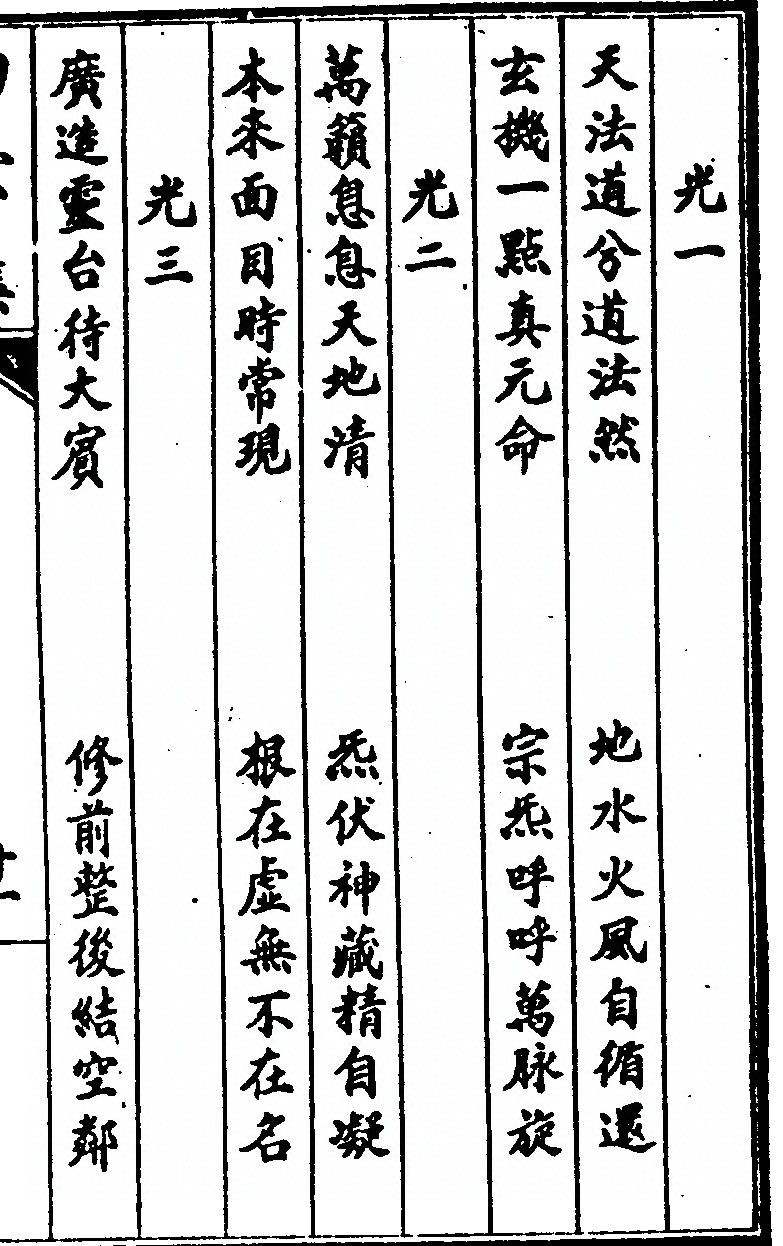 光一
天法道兮道法然　地水火風自循還
玄機一點真元命　宗炁呼呼萬脉旋
光二
萬籟息息天地清　炁伏神藏精自凝
本來面目時常現　根在虛無不在名
光三
廣造靈台待大賓　修前整後結空鄰